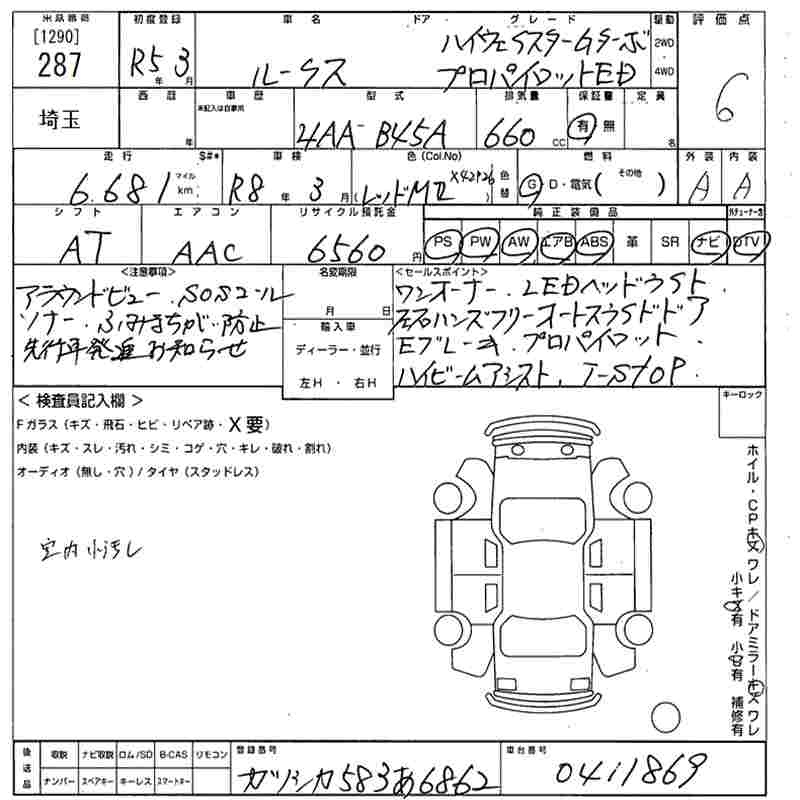 出品番号 初度登録 車名 ドア グレード 駆動 評価点
[1290] 287 R5年3月 ルークス ハイウェイスターGターボ 2WD 6
プロパイロットED 4WD
埼玉 西暦 年 車歴 未記入は自家用 型式 排気量 保証書 定員
4AA-B45A 660cc 有 無 名
走行 S#* 車検 色(Col.No) 燃料 外装 内装
6.681 マイル km R8年3月 (レッドMⅡ X42926) 色替 G・D・電気( その他 ) A A
シフト エアコン リサイクル預託金 純正装備品 外チューナー含
AT AAC 6560円 PS PW AW エアB ABS 革 SR ナビ DTV
<注意事項> 名変期限 <セールスポイント>
アラウンドビュー.SOSコール 月 日 ワンオーナー.LEDヘッドライト.
ソナー.ふみまちがい防止 輸入車 左右ハンズフリーオートスライドドア
先行車発進お知らせ ディーラー・並行 Eブレーキ.プロパイロット.
左H・右H ハイビームアシスト.I-StoP.
<検査員記入欄> キーロック
Fガラス(キズ・飛石・ヒビ・リペア跡・X要)
内装(キズ・スレ・汚れ・シミ・コゲ・穴・キレ・破れ・割れ)
オーディオ(無し・穴)/タイヤ(スタッドレス)
室内小汚レ
ホイル・CPキズワレ/ドアミラーキズワレ
小キズ有 小凹有 補修有
後送品 取説 ナビ取説 ロム/SD B-CAS リモコン 登録番号 車台番号
ナンバー スペアキー キーレス スマートキー カツシカ583あ6862 0411869